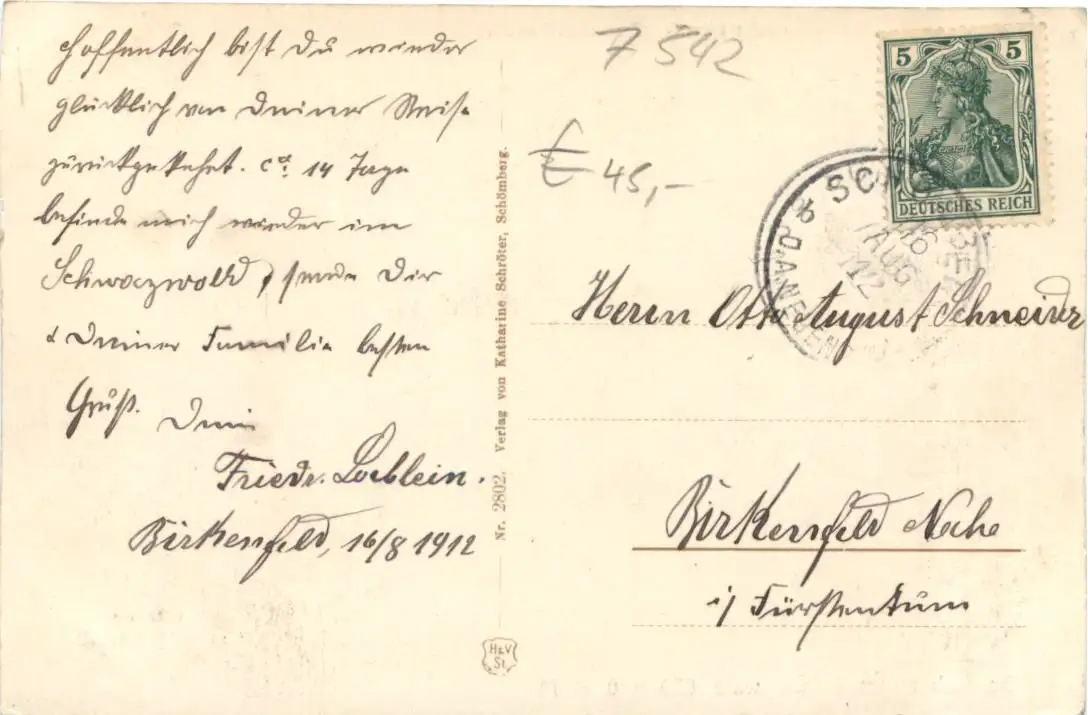 Hoffentlich bist Du wieder
glücklich von Deiner Reise
zurückgekehrt. ca. 14 Tage
befinde mich wieder im
Schwarzwald, sende Dir
& Deiner Familie besten
Gruß. Dein
Friedr. Loeblein.
Birkenfeld, 16/8 1912
Nr. 2802. Verlag von Katharine Schröter, Schömberg.
H&V
St.
7542
€ 45,-
5 5
DEUTSCHES REICH
16
AUG
12
Herrn Otto August Schneider
Birkenfeld Nahe
i/ Fürstentum